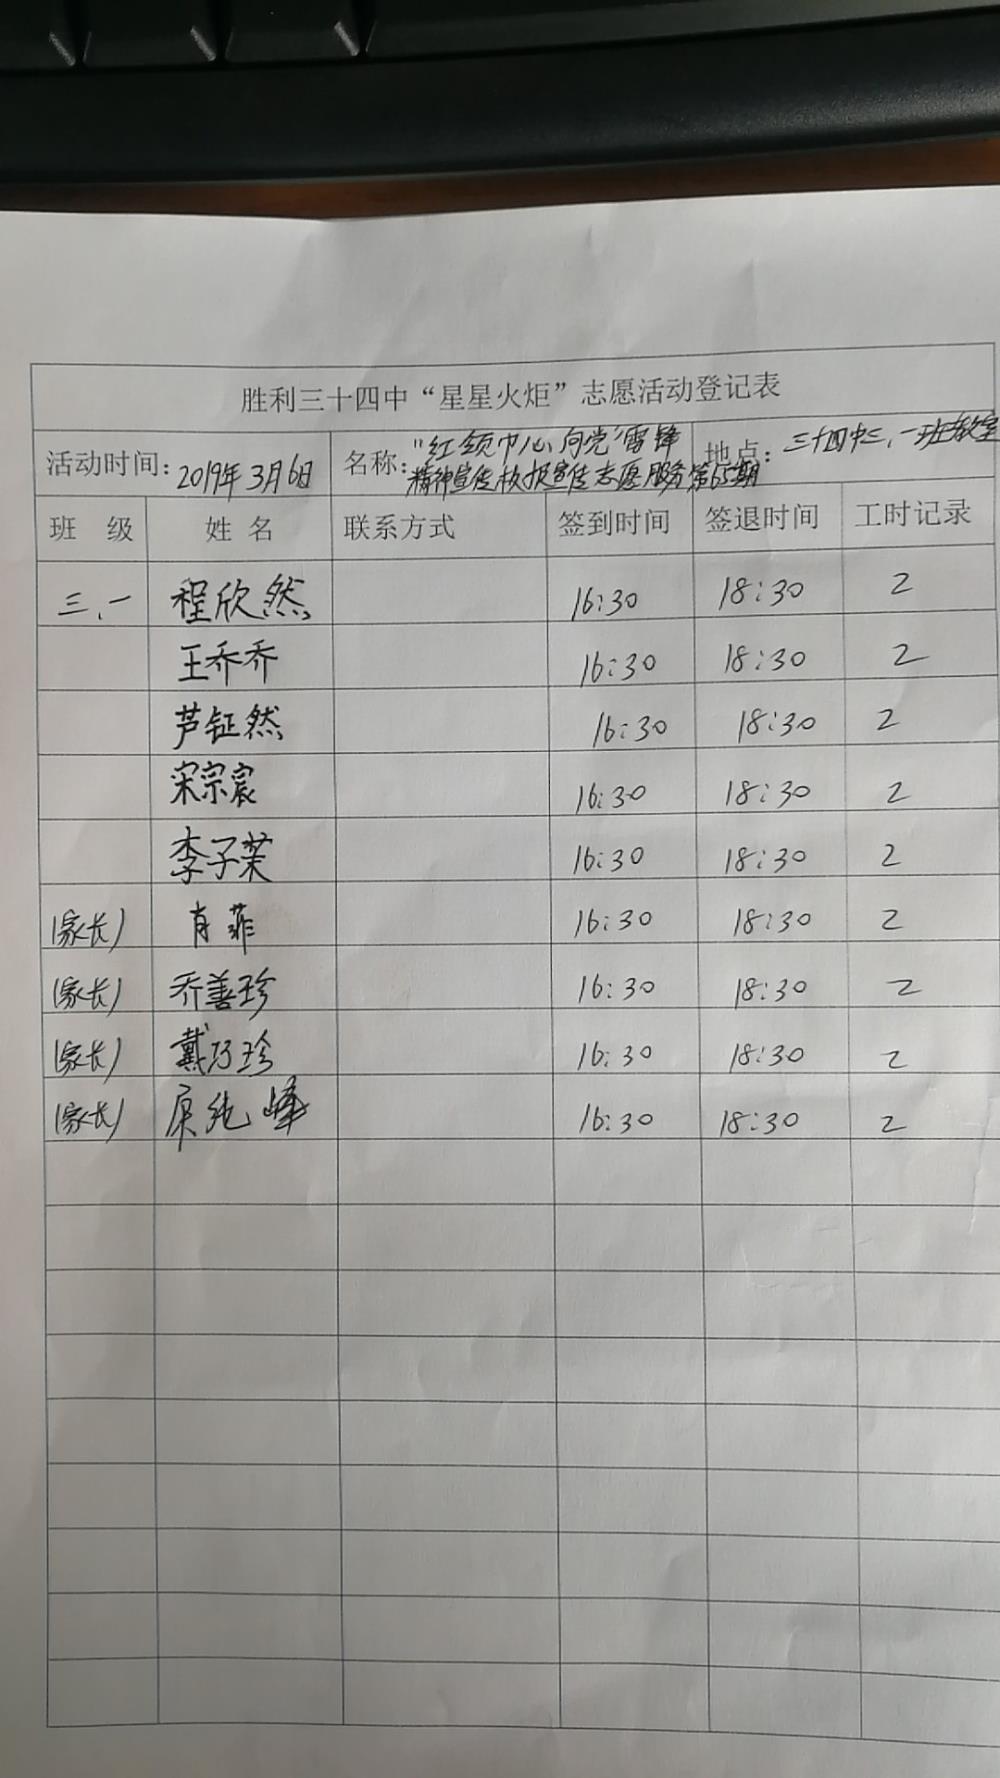 胜利三十四中“星星火炬”志愿活动登记表
活动时间：2019年3月6日 名称：“红领巾心向党”雷锋 地点：三十四中三、一班教室
精神宣传板报宣传志愿服务第65期
班 级 姓 名 联系方式 签到时间 签退时间 工时记录
三、一 程欣然 16:30 18:30 2
王乔乔 16:30 18:30 2
芦钲然 16:30 18:30 2
宋宗宸 16:30 18:30 2
李子茉 16:30 18:30 2
(家长) 肖菲 16:30 18:30 2
(家长) 乔善珍 16:30 18:30 2
(家长) 戴巧珍 16:30 18:30 2
(家长) 16:30 18:30 2